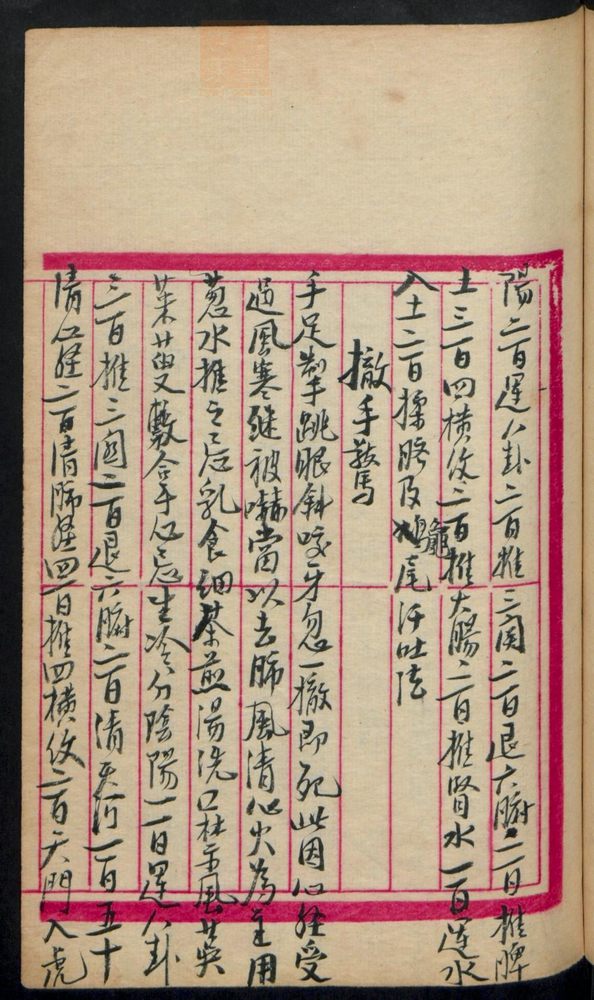 陽二百運八卦二百推三関二百退六腑二百推脾
土三百四横紋二百推大腸二百推腎水一百運水
入土二百揉臍及龜尾汗吐法
撤手驚馬
手足掣跳眼斜咬牙忽一撤即死此因心経受
過風寒継被嚇當以去肺風清心火為主用
葱水推之忌乳食細茶煎湯洗口
茱萸敷合手心忌生冷分陰陽一百運八卦
三百推三関二百退六腑二百清天河一百五十
清心経二百清肺経四百推四横紋二百天門入虎